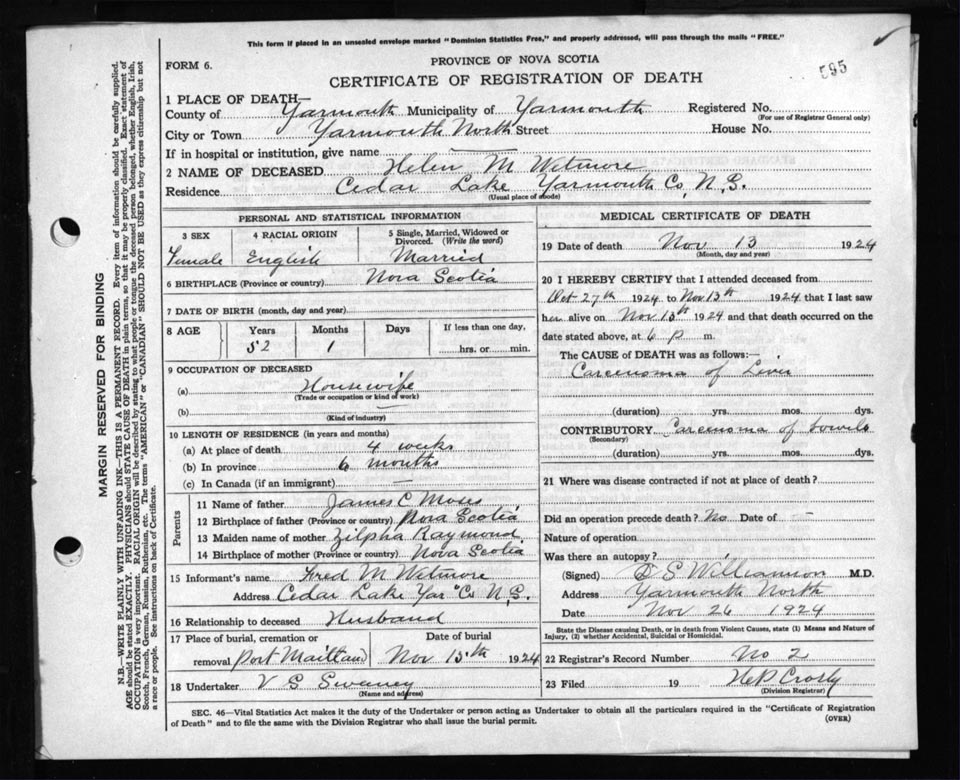 This form if placed in an unsealed envelope marked "Dominion Statistics Free," and properly addressed, will pass through the mails "FREE."
FORM 6.
PROVINCE OF NOVA SCOTIA
595
CERTIFICATE OF REGISTRATION OF DEATH
1 PLACE OF DEATH—
County of Yarmouth Municipality of Yarmouth Registered No.
(For use of Registrar General only)
City or Town Yarmouth North Street House No.
If in hospital or institution, give name
2 NAME OF DECEASED Helen M Wetmore
Residence Cedar Lake Yarmouth Co, N.S.
(Usual place of abode)
PERSONAL AND STATISTICAL INFORMATION
3 SEX 4 RACIAL ORIGIN 5 Single, Married, Widowed or Divorced. (Write the word)
Female English Married
6 BIRTHPLACE (Province or country) Nova Scotia
7 DATE OF BIRTH (month, day and year)
8 AGE Years Months Days If less than one day,
52 1 hrs. or min.
9 OCCUPATION OF DECEASED
(a) Housewife
(Trade or occupation or kind of work)
(b)
(Kind of industry)
10 LENGTH OF RESIDENCE (in years and months)
(a) At place of death 4 weeks
(b) In province 6 months
(c) In Canada (if an immigrant) —
Parents
11 Name of father James C Moses
12 Birthplace of father (Province or country) Nova Scotia
13 Maiden name of mother Zilpha Raymond
14 Birthplace of mother (Province or country) Nova Scotia
15 Informant's name Fred M Wetmore
Address Cedar Lake Yar Co N.S.
16 Relationship to deceased Husband
17 Place of burial, cremation or Date of burial
removal Port Maitland Nov 15th 1924
18 Undertaker V S Sweeney
(Name and address)
MEDICAL CERTIFICATE OF DEATH
19 Date of death Nov 13 1924
(Month, day and year)
20 I HEREBY CERTIFY that I attended deceased from
Oct 27th 1924 to Nov 13th 1924 that I last saw
her alive on Nov 13th 1924 and that death occurred on the
date stated above, at 6 p m.
The CAUSE of DEATH was as follows:
Carcenoma of Liver
(duration) yrs. mos. dys.
CONTRIBUTORY Carcenoma of bowels
(Secondary)
(duration) yrs. mos. dys.
21 Where was disease contracted if not at place of death?
Did an operation precede death? No Date of —
Nature of operation
Was there an autopsy?
(Signed) S Williamson M.D.
Address Yarmouth North
Date Nov 26 1924
State the Disease causing Death, or in death from Violent Causes, state (1) Means and Nature of
Injury, (2) whether Accidental, Suicidal or Homicidal.
22 Registrar's Record Number No 2
23 Filed 19 Crosby
(Division Registrar)
SEC. 46—Vital Statistics Act makes it the duty of the Undertaker or person acting as Undertaker to obtain all the particulars required in the "Certificate of Registration
of Death" and to file the same with the Division Registrar who shall issue the burial permit.
(OVER)
MARGIN RESERVED FOR BINDING
N.B.—WRITE PLAINLY WITH UNFADING INK—THIS IS A PERMANENT RECORD. Every item of information should be carefully supplied.
AGE should be stated EXACTLY. PHYSICIANS should STATE CAUSE OF DEATH in plain terms, so that it may be properly classified. Exact statement of
OCCUPATION is very important. RACIAL ORIGIN will be described by stating to what people or tongue the deceased person belonged, whether English, Irish,
Scotch, French, German, Russian, Ruthenian, etc. The terms "AMERICAN" or "CANADIAN" SHOULD NOT BE USED as they express citizenship but not
a race or people. See instructions on back of Certificate.